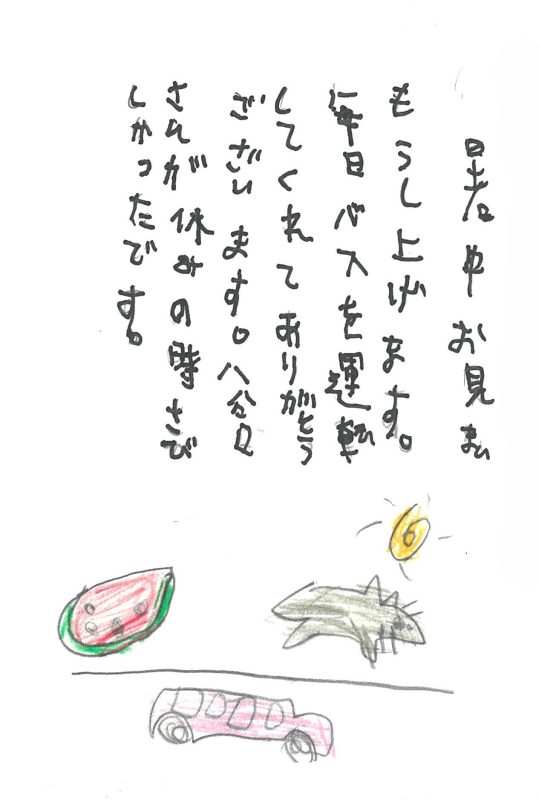 暑中お見まい
もうし上げます。
毎日バスを運転
してくれてありがとう
ございます。
さんが休みの時さび
しかったです。